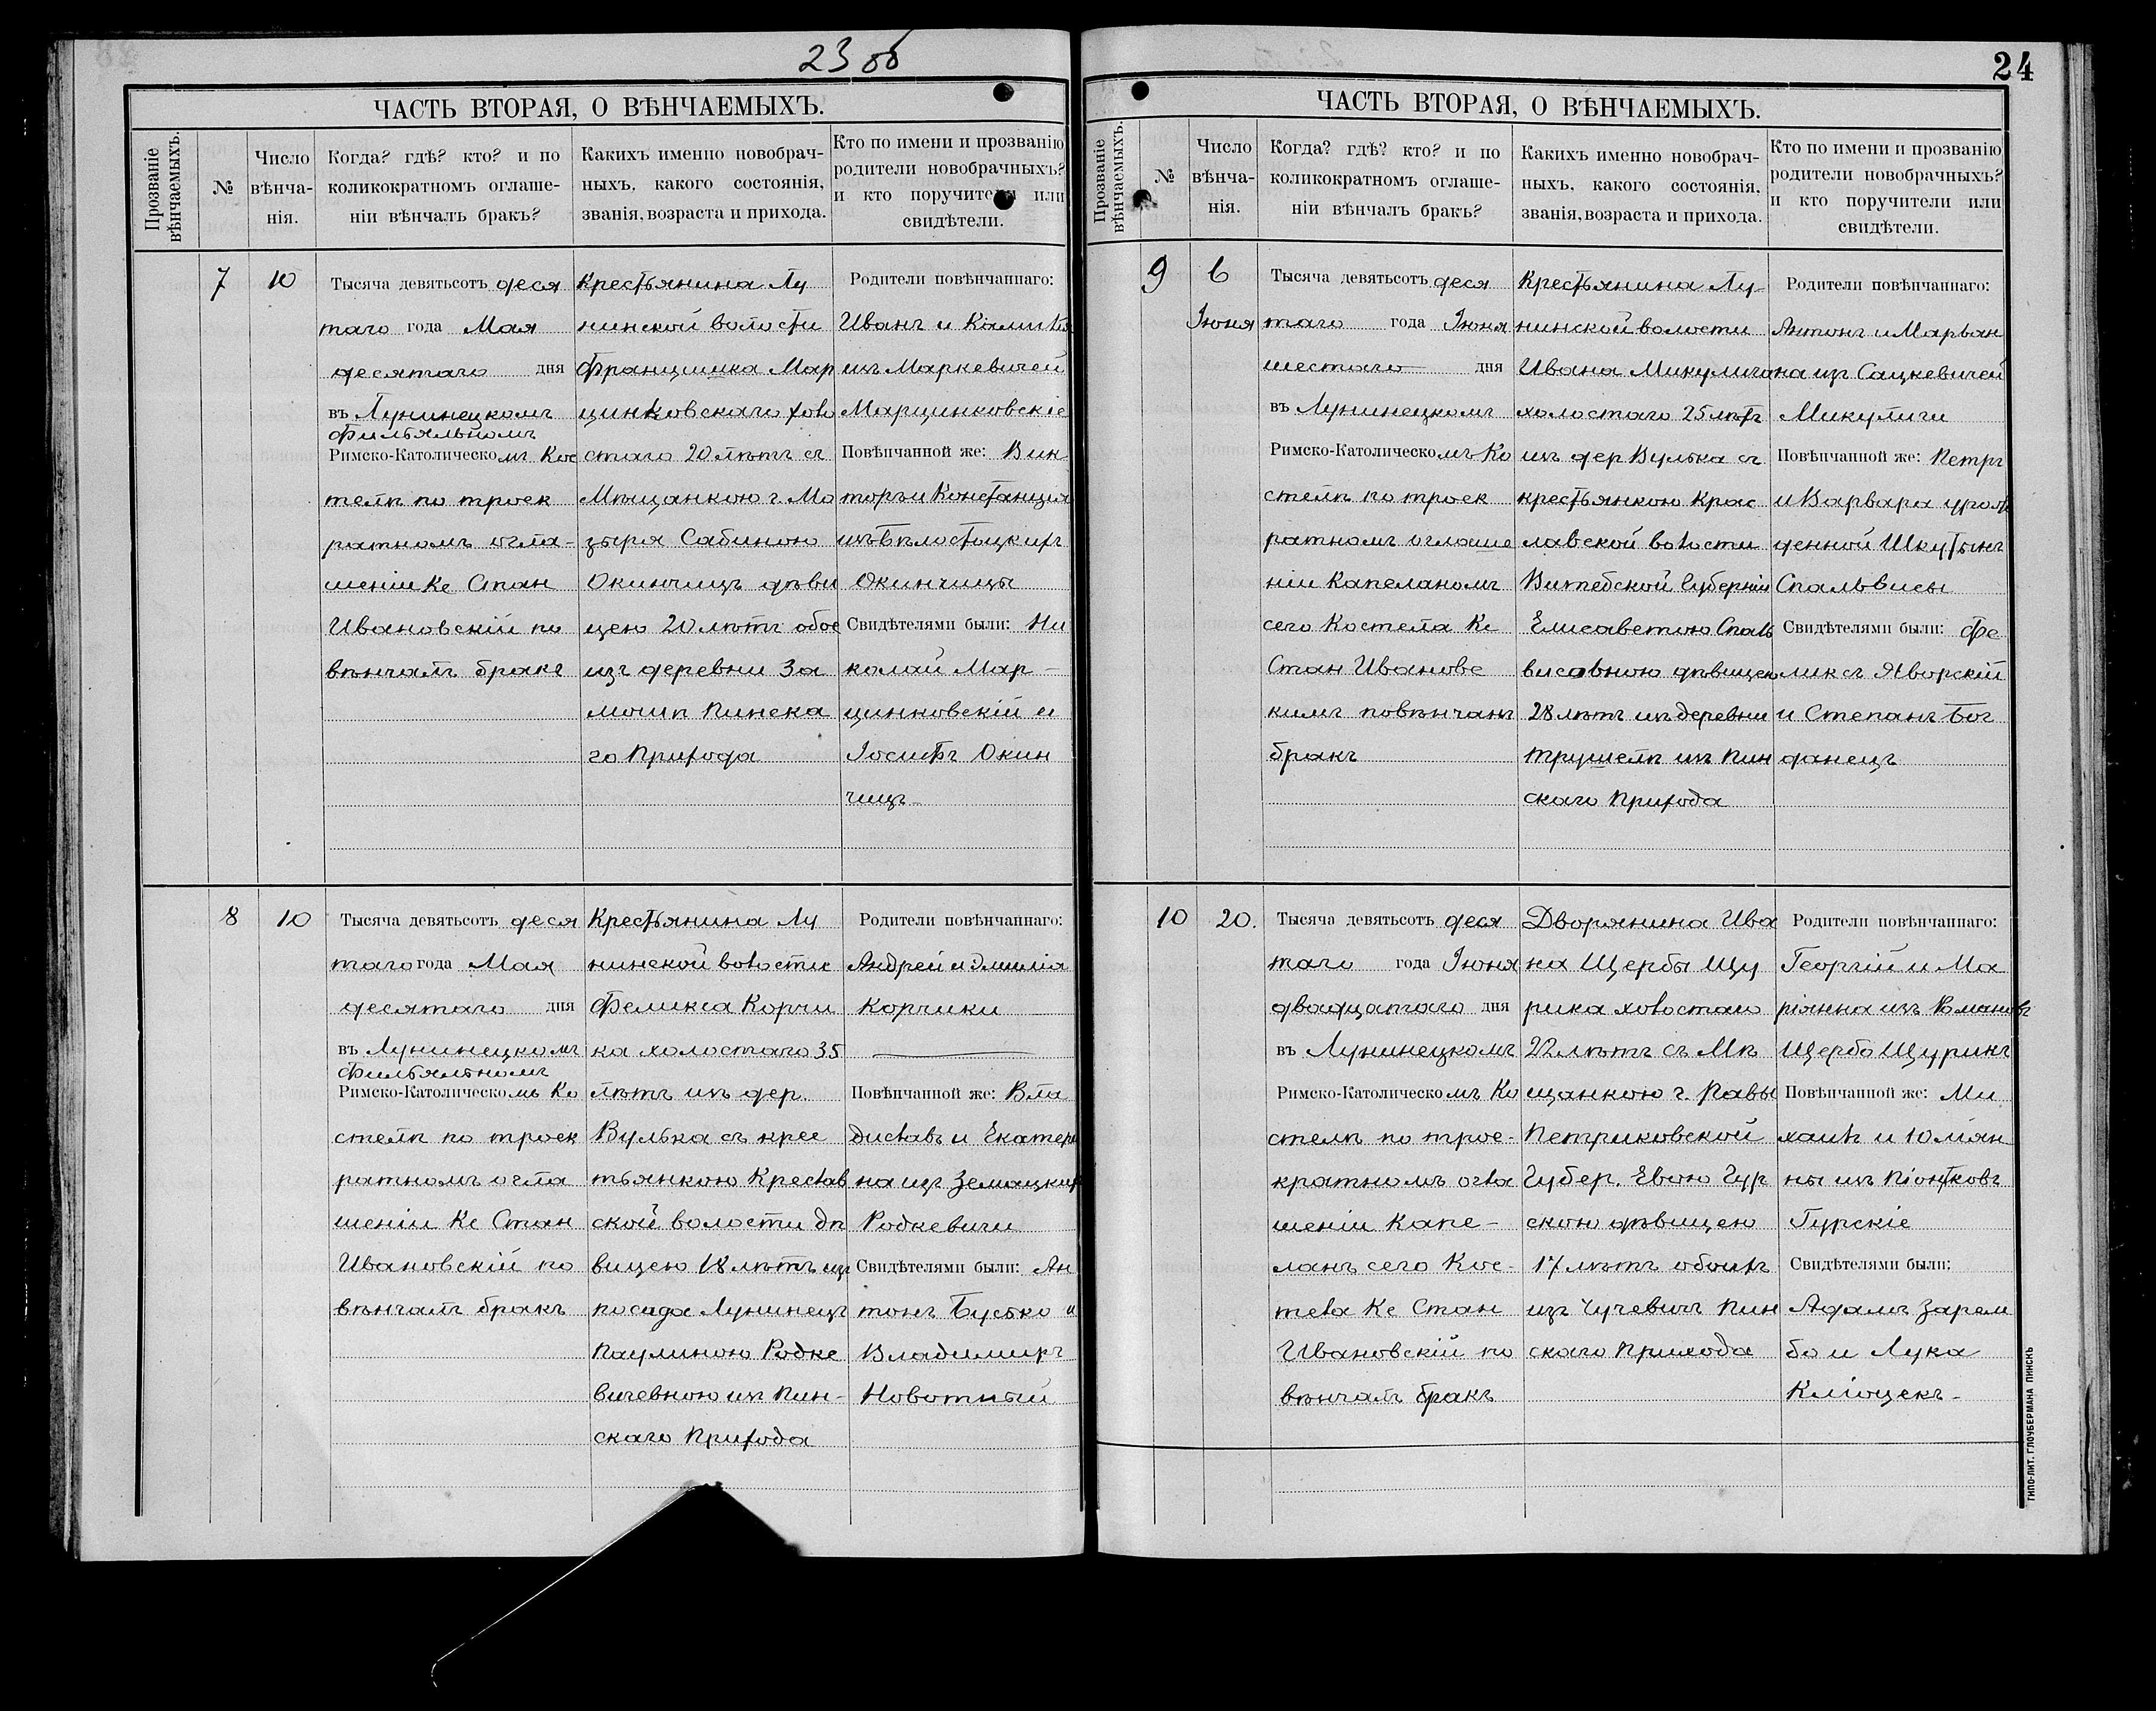 23 об
ЧАСТЬ ВТОРАЯ, О ВѢНЧАЕМЫХЪ.
Прозваніе вѣнчаемыхъ.
№
Число вѣнча-нія.
Когда? гдѣ? кто? и по
коликократномъ оглаше-
ніи вѣнчалъ бракъ?
Какихъ именно новобрач-
ныхъ, какого состоянія,
званія, возраста и прихода.
Кто по имени и прозванію
родители новобрачныхъ?
и кто поручители или
свидѣтели.
7
10
Тысяча девятьсотъ деся
таго года Мая
десятаго дня
въ Лунинецкомъ
Фильяльномъ
Римско-Католическомъ Кос
телѣ по троек
ратномъ огла-
шеніи Ке Стан
Ивановскій по
вѣнчалъ бракъ
Крестьянина Лу
нинской волости
Францишка Мар
цинковскаго холо
стаго 20 лѣтъ съ
Мѣщанкою г. Мо
зыря Сабиною
Окинчицъ дѣви
цею 20 лѣтъ обое
изъ деревни За
мошѣ Пинска
го Прихода
Родители повѣнчаннаго:
Иванъ и
изъ Маркевичей
Марцинковскіе
Повѣнчанной же: Вик
торъ и Констанція
изъ Бѣлостоцкихъ
Окинчицы
Свидѣтелями были: Ни
колай Мар-
цинковскій и
Іосифъ Окин
чицъ
8
10
Тысяча девятьсотъ деся
таго года Мая
десятаго дня
въ Лунинецкомъ
Фильяльномъ
Римско-Католическомъ Ко
стелѣ по троек
ратномъ огла
шеніи Ке Стан
Ивановскій по
вѣнчалъ бракъ
Крестьянина Лу
нинской волости
Феликса Корчи
ка холостаго 35
лѣтъ изъ дер.
Вулька съ крес
тьянкою Креслав
ской волости дѣ
вицею 18 лѣтъ изъ
посада Лунинецъ
Паулиною Родке
вичевною изъ Пин-
скаго Прихода
Родители повѣнчаннаго:
Андрей и Эмилія
Корчики
Повѣнчанной же: Вла
диславъ и Екатери
на изъ Земацкихъ
Родкевичи
Свидѣтелями были: Ан
тонъ Бусько и
Владимиръ
Новотный
24
ЧАСТЬ ВТОРАЯ, О ВѢНЧАЕМЫХЪ.
Прозваніе вѣнчаемыхъ.
№
Число вѣнча-нія.
Когда? гдѣ? кто? и по
коликократномъ оглаше-
ніи вѣнчалъ бракъ?
Какихъ именно новобрач-
ныхъ, какого состоянія,
званія, возраста и прихода.
Кто по имени и прозванію
родители новобрачныхъ?
и кто поручители или
свидѣтели.
9
6
Іюня
Тысяча девятьсотъ деся
таго года Іюня
шестаго дня
въ Лунинецкомъ
Римско-Католическомъ Ко
стелѣ по троек
ратномъ оглаше
ніи Капеланомъ
сего Костела Ке
Стан Ивановс
кимъ повѣнчанъ
бракъ
Крестьянина Лу-
нинской волости
Ивана Микулича
холостаго 25 лѣтъ
изъ дер Вулька съ
крестьянкою Крас
лавской волости
Витебской Губерніи
Елисаветою Спаль
висовною дѣвицею
28 лѣтъ изъ деревни
Трушелѣ изъ Пин
скаго Прихода
Родители повѣнчаннаго:
Антонъ и Марьян
на изъ Сацкевичей
Микуличи
Повѣнчанной же: Петръ
и Варвара урож
денной
Спальвисы
Свидѣтелями были: Фе
ликсъ Яворскій
и Степанъ Бог
данецъ
10
20.
Тысяча девятьсотъ деся
таго года Іюня
двадцатаго дня
въ Лунинецкомъ
Римско-Католическомъ Ко
стелѣ по трое-
кратномъ огла
шеніи Капе-
ланъ сего Кос-
тела Ке Стан
Ивановскій по
вѣнчалъ бракъ
Дворянина Ива
на Щербы Щу
рика холостаго
22 лѣтъ съ Мѣ
щанкою г. Равы
Петриковской
Губер. Евою Гур
скою дѣвицею
17 лѣтъ обоихъ
изъ Чучевичъ Пин
скаго Прихода
Родители повѣнчаннаго:
Георгій и Ма
ріянна изъ
Щербо Щурикъ
Повѣнчанной же: Ми
хаилъ и Юліян
ны изъ Піонтковъ
Гурскіе
Свидѣтелями были:
Адамъ Зарем
бо и Лука
Кліоцекъ-
ТИПО-ЛИТ. ГЛОУБЕРМАНА ПИНСКЪ